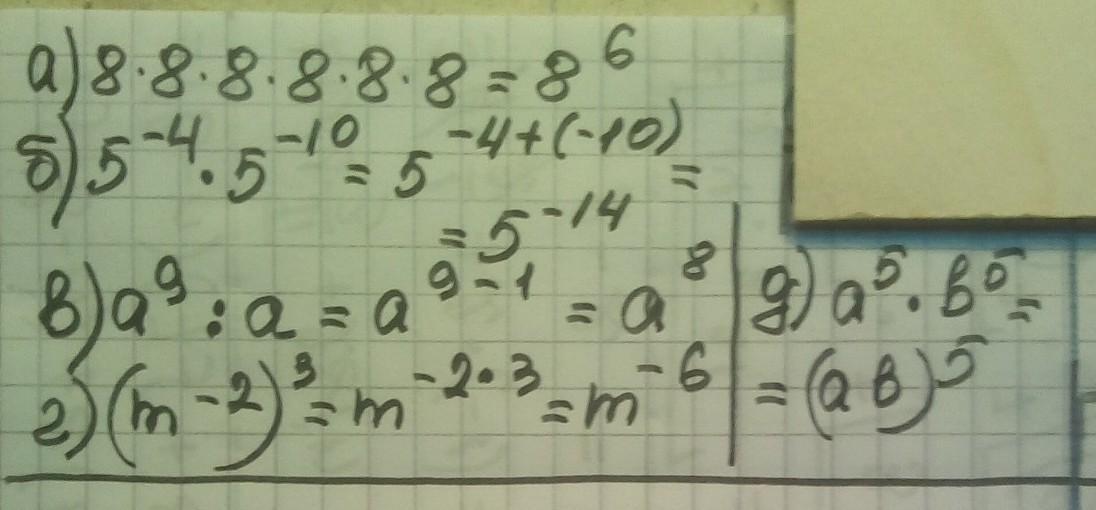 а) 8·8·8·8·8·8 = 8⁶
б) 5⁻⁴·5⁻¹⁰ = 5⁻⁴⁺⁽⁻¹⁰⁾ =
= 5⁻¹⁴
в) a⁹ : a = a⁹⁻¹ = a⁸
г) (m-2)³ = m⁻²·³ = m⁻⁶
д) a⁵·b⁵ =
= (ab)⁵